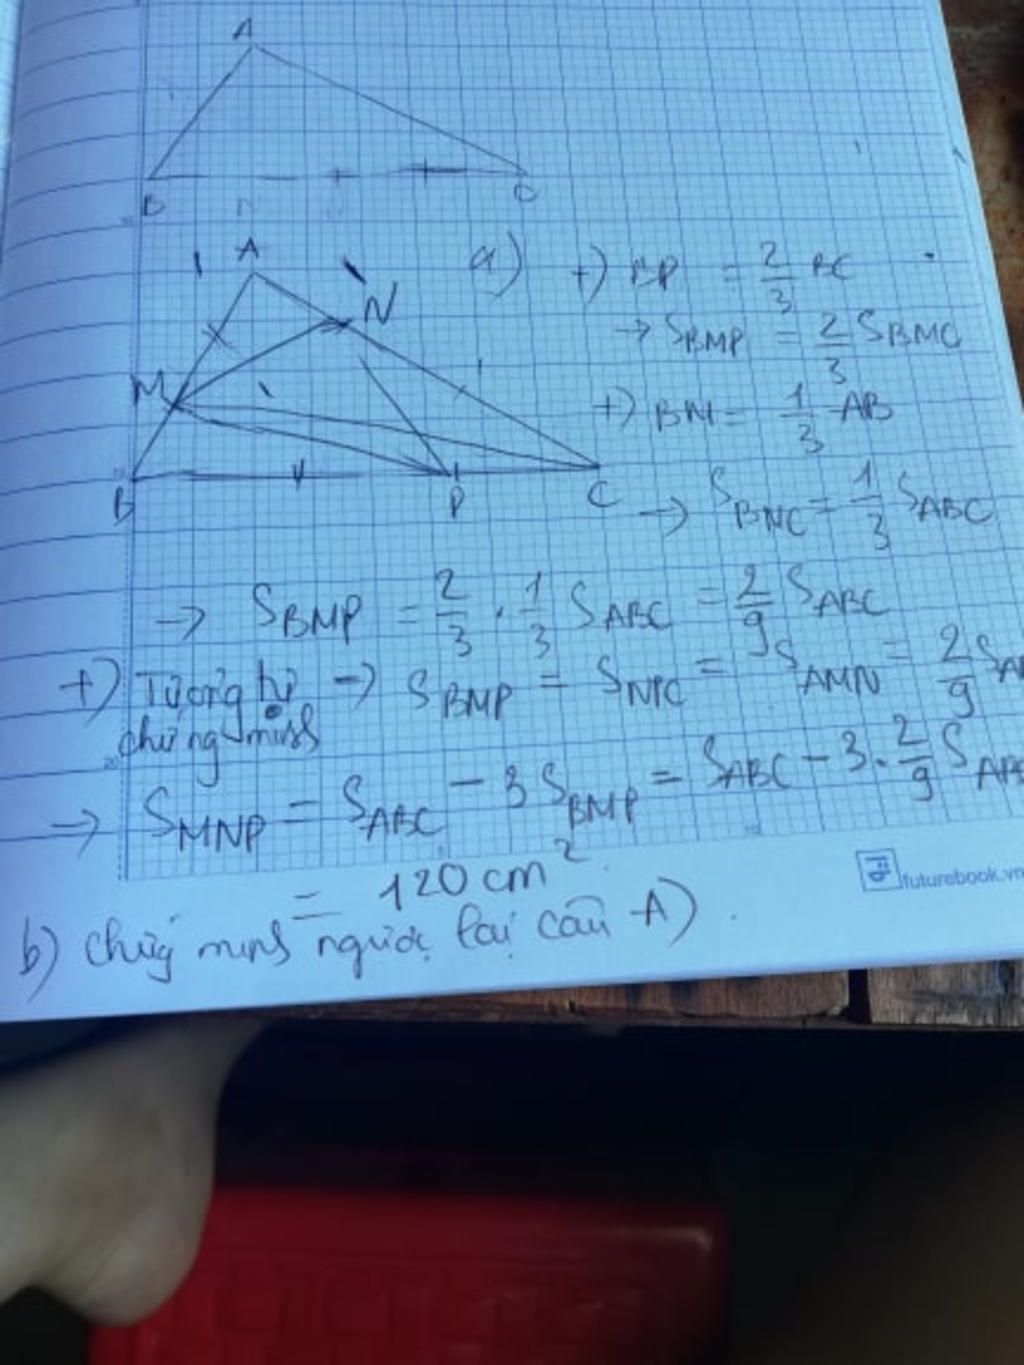 A
B C
A
N
M
B P C
a) +) BP = 2/3 BC
→ S_BMP = 2/3 S_BMC
+) BM = 1/3 AB
→ S_BNC = 1/3 S_ABC
→ S_BMP = 2/3 . 1/3 S_ABC = 2/9 S_ABC
+) Tương tự → S_BMP = S_NPC = S_AMN = 2/9 S_AB
chứng minh
→ S_MNP = S_ABC - 3 S_BMP = S_ABC - 3. 2/9 S_ABC
= 120 cm²
futurebook.vn
b) chứng minh ngược lại câu A)